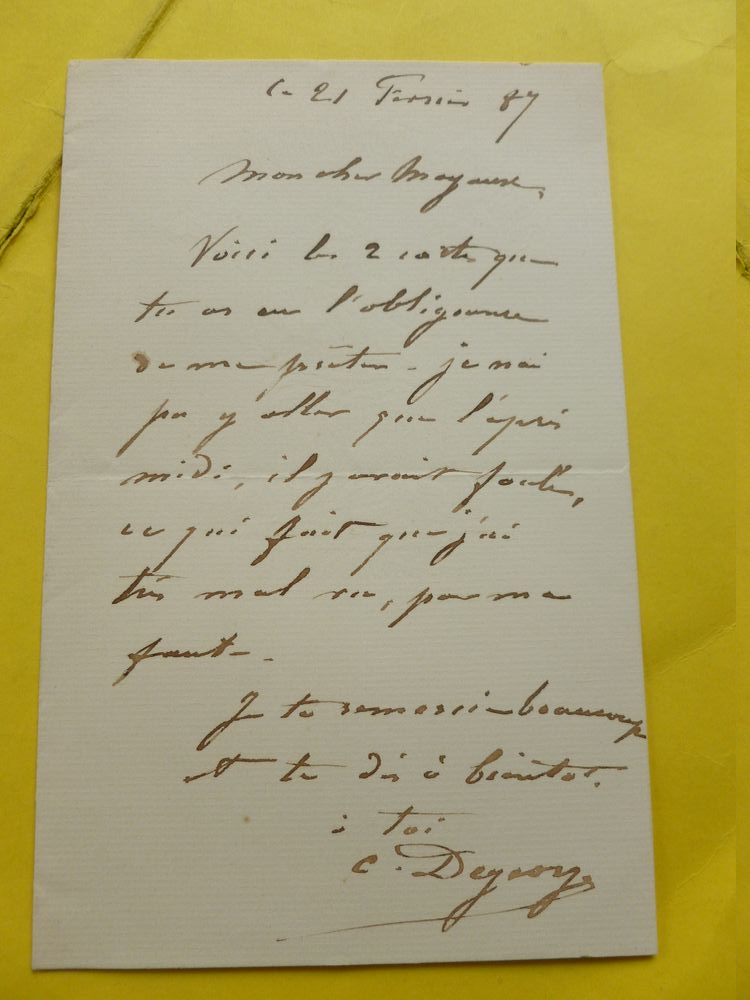 Le 21 Fevrier 87
Mon cher Mayeux,
Voici les 2 cartes que
tu as eu l'obligeance
de me prêter - je n'ai
pu y aller que l'après
midi, il y avait foule,
ce qui fait que j'ai
très mal vu, par ma
faute.
Je te remercie beaucoup
et te dis à bientôt.
à toi
C. Degeorge